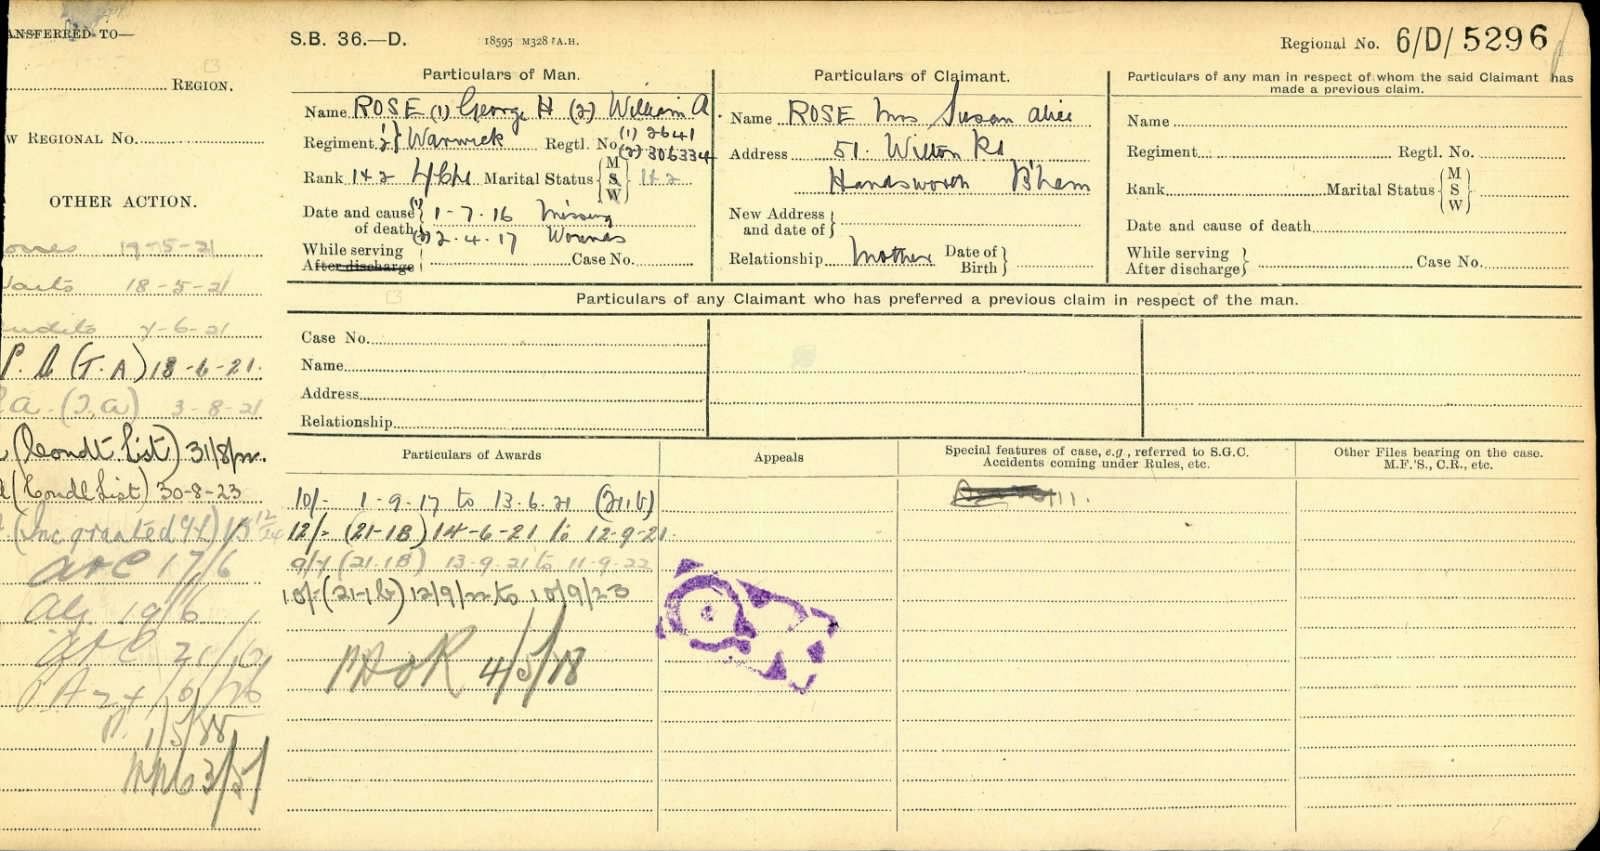 ANSFERRED TO—
REGION.
W REGIONAL No.
OTHER ACTION.
19-5-21
18-5-21
7-6-21
(T.A) 18-6-21.
(T.A) 3-8-21
(Condt List) 31/8/22.
(Condl List) 30-8-23
17/6
19/6
S.B. 36.—D.
18595 M328 A.H.
Regional No. 6/D/5296
Particulars of Man.
Name ROSE (1) George H (2) William A.
Regiment 1/2} Warwick Regtl. No. (1) 2641
(2) 306334
Rank 1+2 Marital Status { M S W } 1+2
Date and cause of death (1) 1-7-16 Missing
(2) 2.4.17 Wounds
While serving
After discharge Case No.
Particulars of Claimant.
Name ROSE Mrs Susan Alice
Address 51. Wilton Rd
Handsworth B'ham
New Address and date of
Relationship Mother Date of Birth
Particulars of any man in respect of whom the said Claimant has
made a previous claim.
Name
Regiment Regtl. No.
Rank Marital Status { M S W }
Date and cause of death
While serving
After discharge Case No.
Particulars of any Claimant who has preferred a previous claim in respect of the man.
Case No.
Name
Address
Relationship
Particulars of Awards
10/- 1-9-17 to 13.6.21 (21.b)
12/- (21-1B) 14-6-21 to 12-9-21
(21.1B) 13-9-21 to 11-9-22
10/- (21-1b) 12/9/22 to 10/9/23
Appeals
Special features of case, e.g., referred to S.G.C.
Accidents coming under Rules, etc.
Other Files bearing on the case.
M.F.'S., C.R., etc.